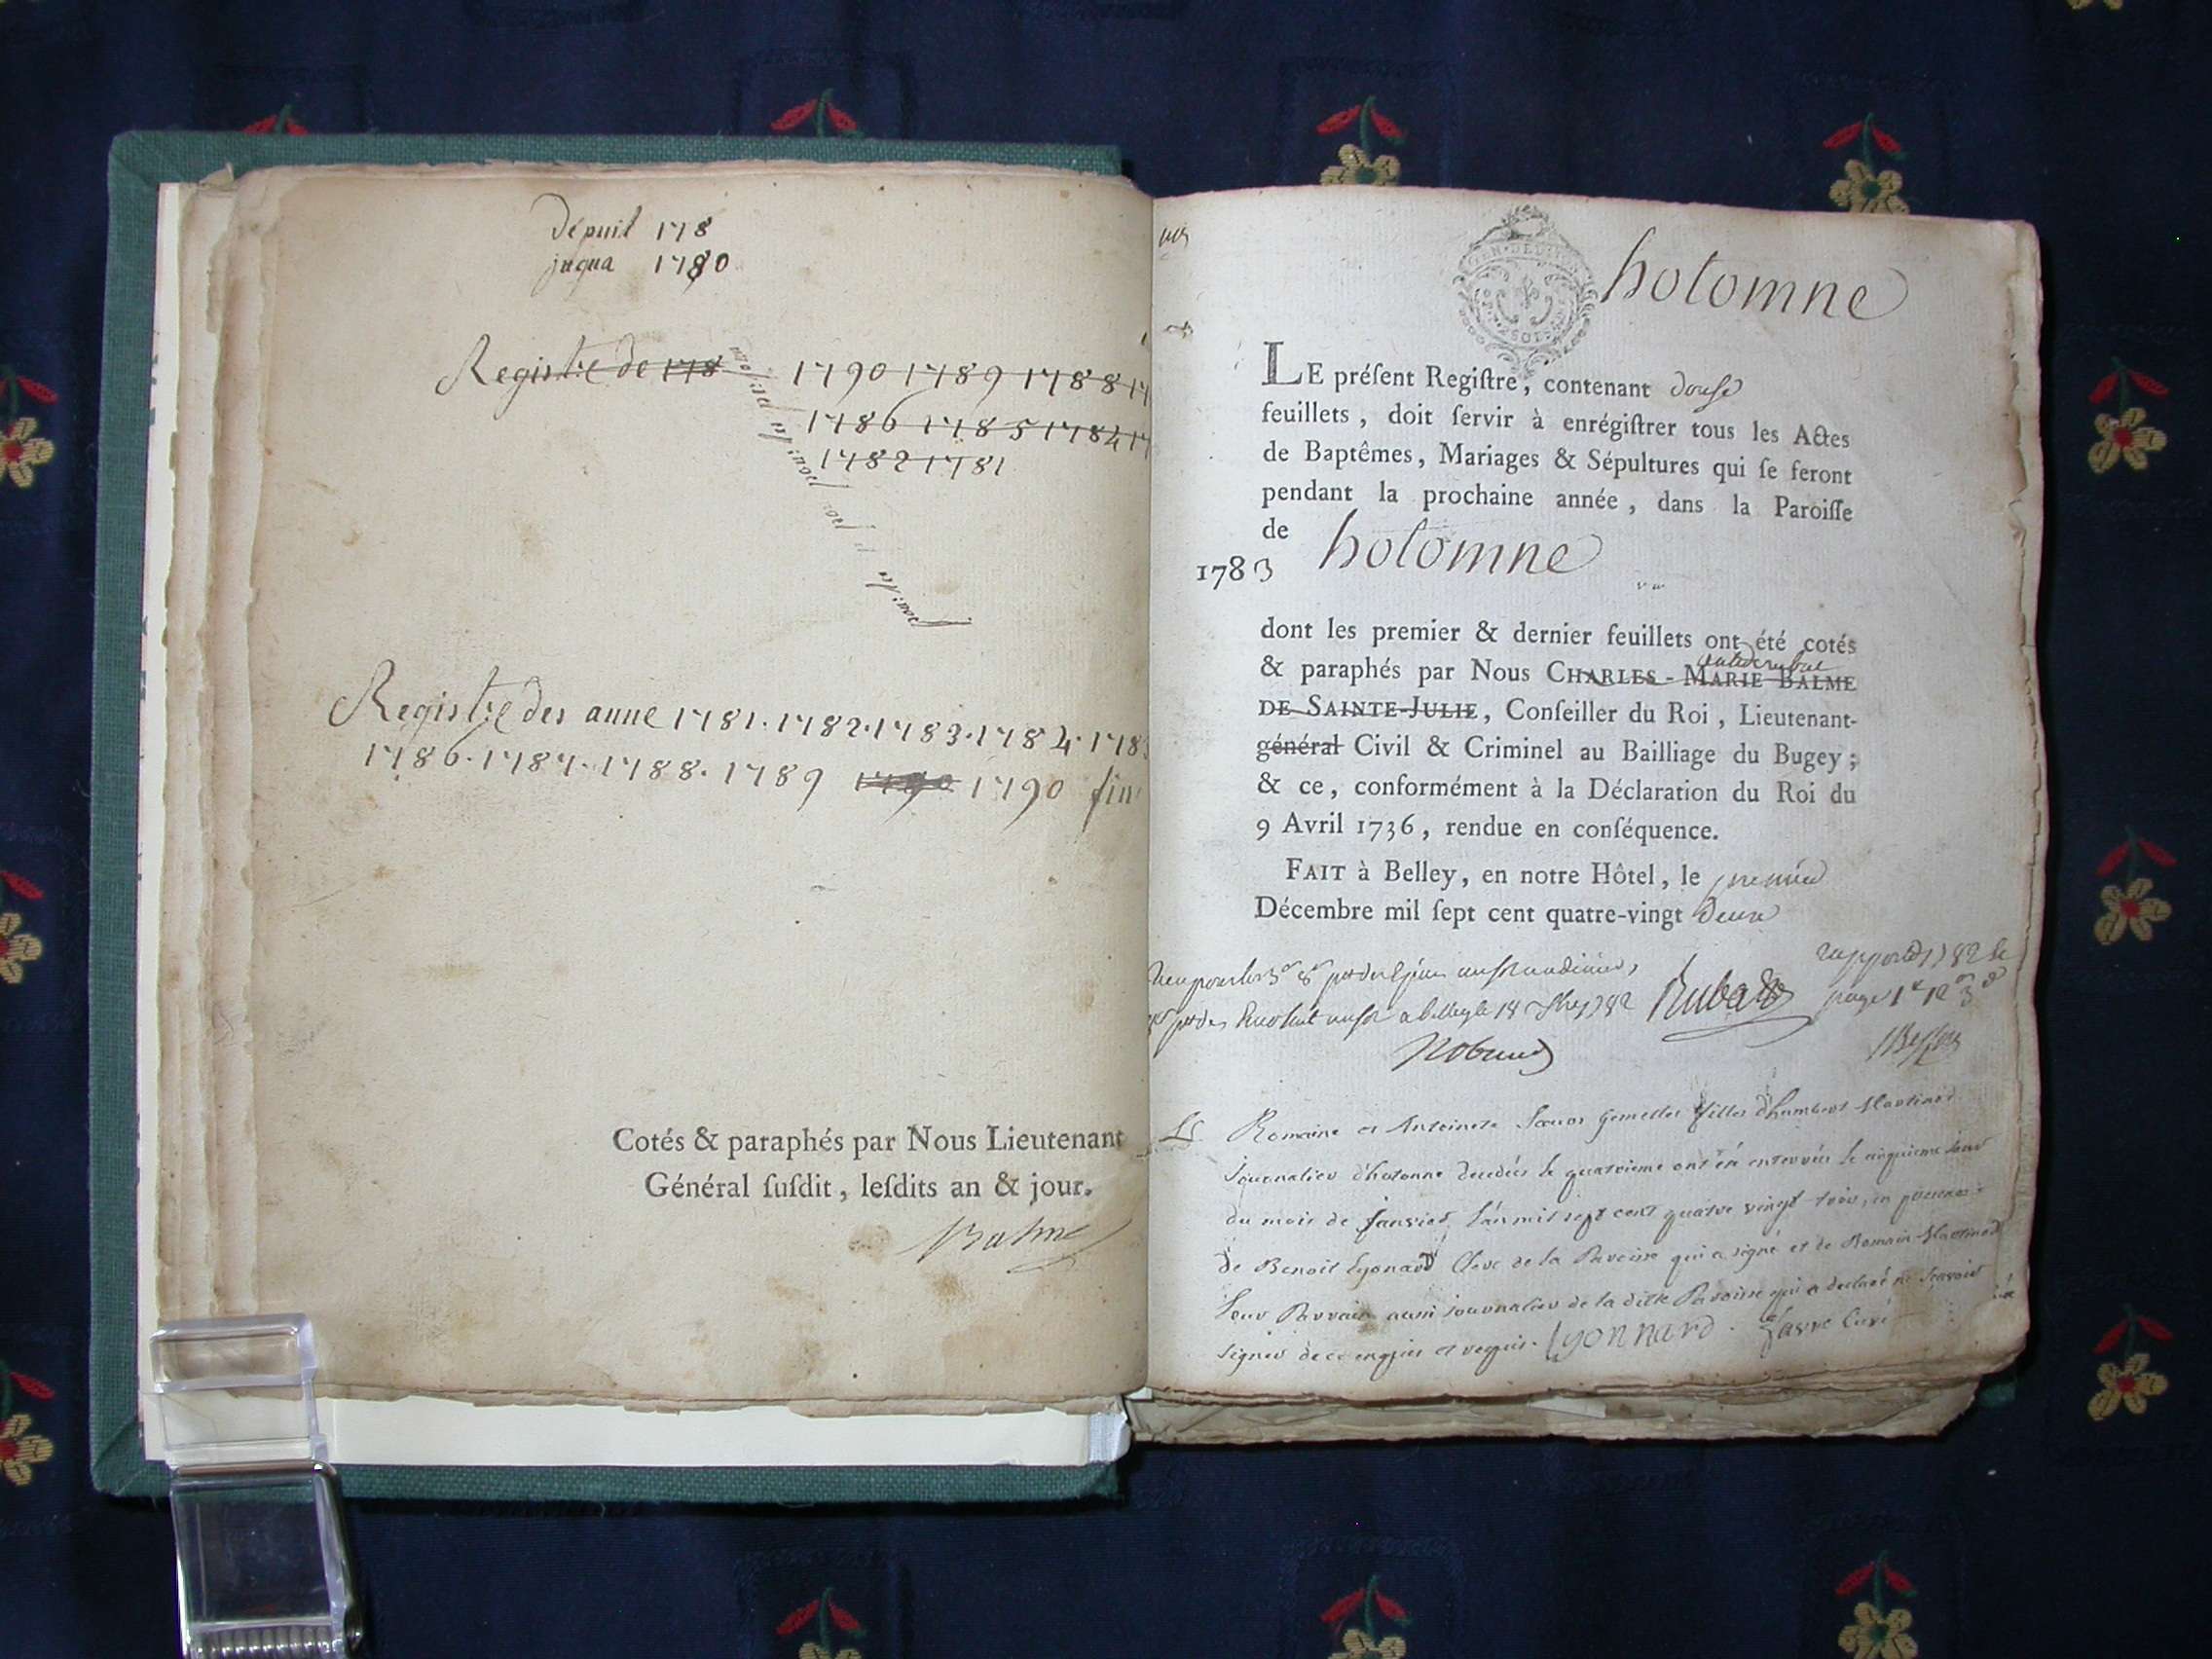 depuil 178
juqua 1780
Registre de 178 1790 1789 1788 17
1786 1785 1784 17
1782 1781
Registre des anne 1781. 1782. 1783. 1784. 178
1786. 1787. 1788. 1789 1790 1790 fin
Cotés & paraphés par Nous Lieutenant
Général ſuſdit, leſdits an & jour.
Balme
hotomne
LE préſent Regiſtre, contenant douse
feuillets, doit ſervir à enrégiſtrer tous les Actes
de Baptêmes, Mariages & Sépultures qui ſe feront
pendant la prochaine année, dans la Paroiſſe
de
1783 hotomne
dont les premier & dernier feuillets ont été cotés
& paraphés par Nous CHARLES-MARIE BALME
DE SAINTE-JULIE, Conſeiller du Roi, Lieutenant-
général Civil & Criminel au Bailliage du Bugey;
& ce, conformément à la Déclaration du Roi du
9 Avril 1736, rendue en conſéquence.
FAIT à Belley, en notre Hôtel, le premier
Décembre mil ſept cent quatre-vingt deux
Romaine et Antoinete Sœurs Gemelles filles d'humbert Martinod
Journalier d'hotonne decedées le quatrieme ont été enterrées le cinquieme jour
du mois de Janvier l'an mil sept cent quatre vingt trois, en presence
de Benoit Lyonard Clerc de la Paroisse qui a signé et de Romain Martinod
leur Parrain aussi journalier de la dite Paroisse qui a declaré ne sçavoir
signer de ce enquis et requis. Lyonnard. favre Curé